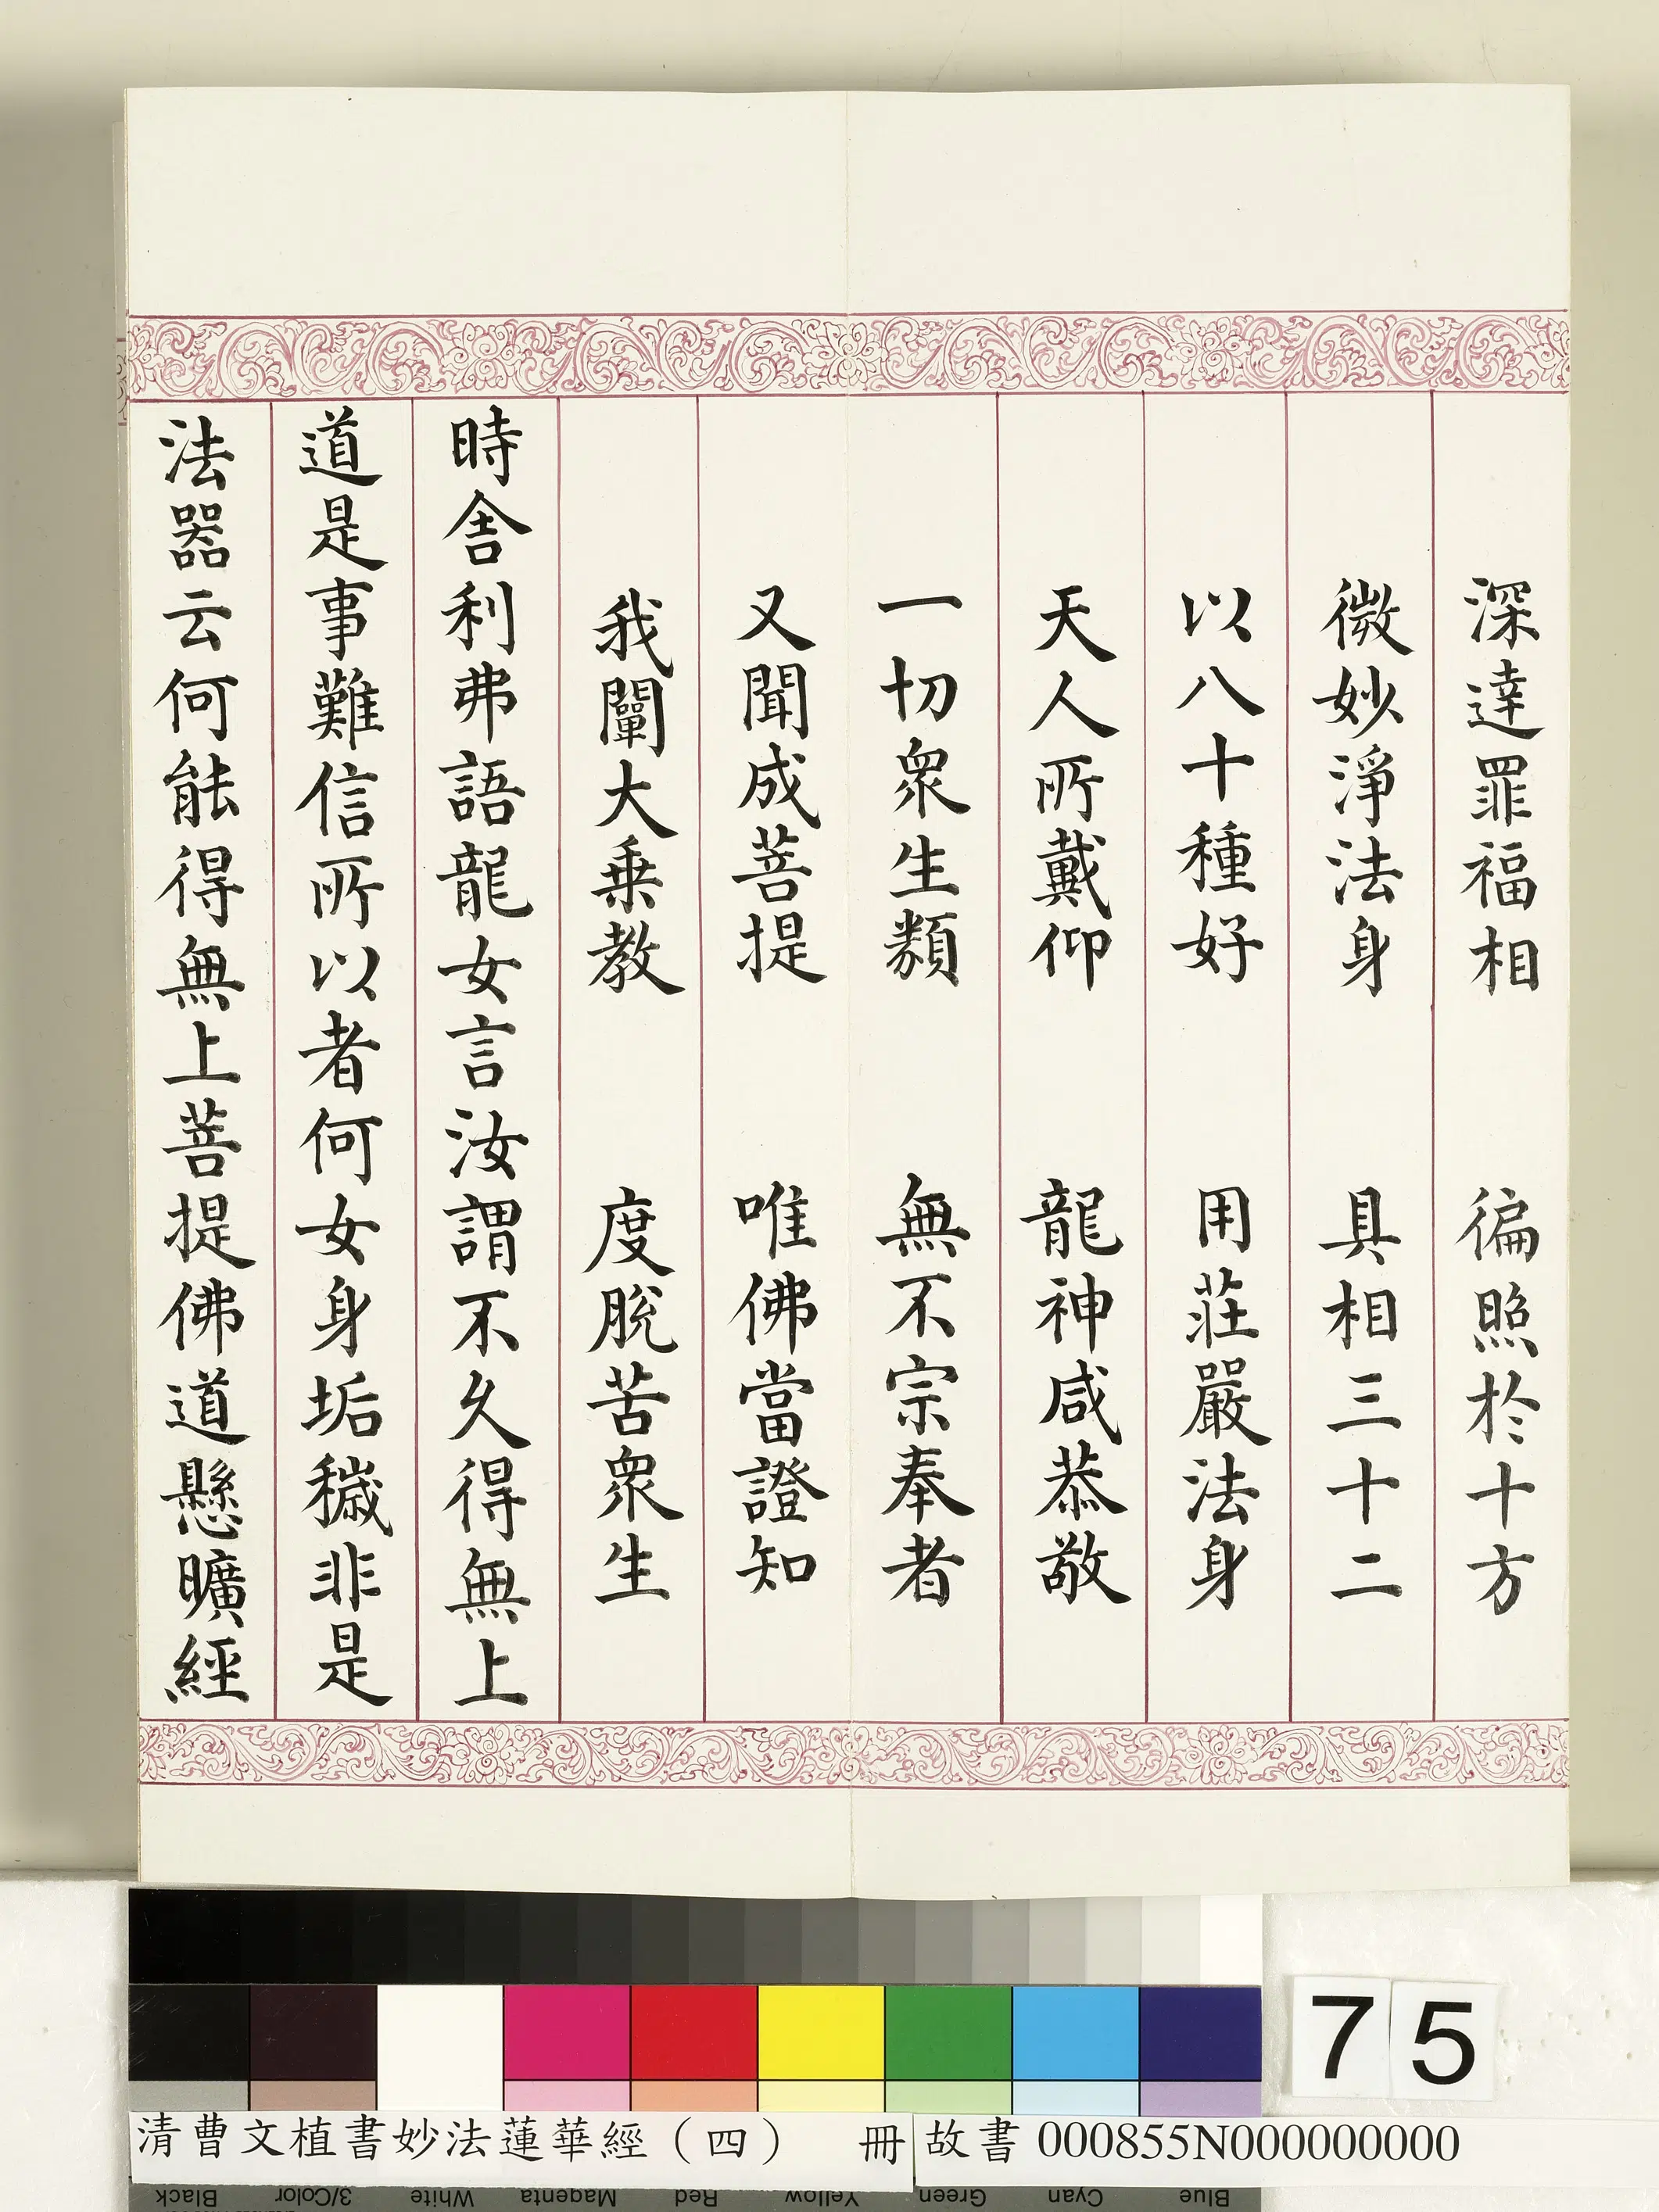 深達罪福相　徧照於十方
微妙淨法身　具相三十二
以八十種好　用莊嚴法身
天人所戴仰　龍神咸恭敬
一切衆生類　無不宗奉者
又聞成菩提　唯佛當證知
我闡大乗教　度脫苦衆生
時舍利弗語龍女言汝謂不久得無上
道是事難信所以者何女身垢穢非是
法器云何能得無上菩提佛道懸曠經
75
清曹文植書妙法蓮華經（四）　冊
故書 000855N000000000
Black 3/Color White Magenta Red Yellow Green Cyan Blue